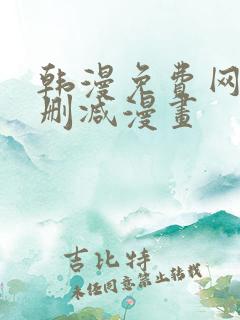 韩漫免费网
删减漫畫
吉比特
未经同意禁止转载